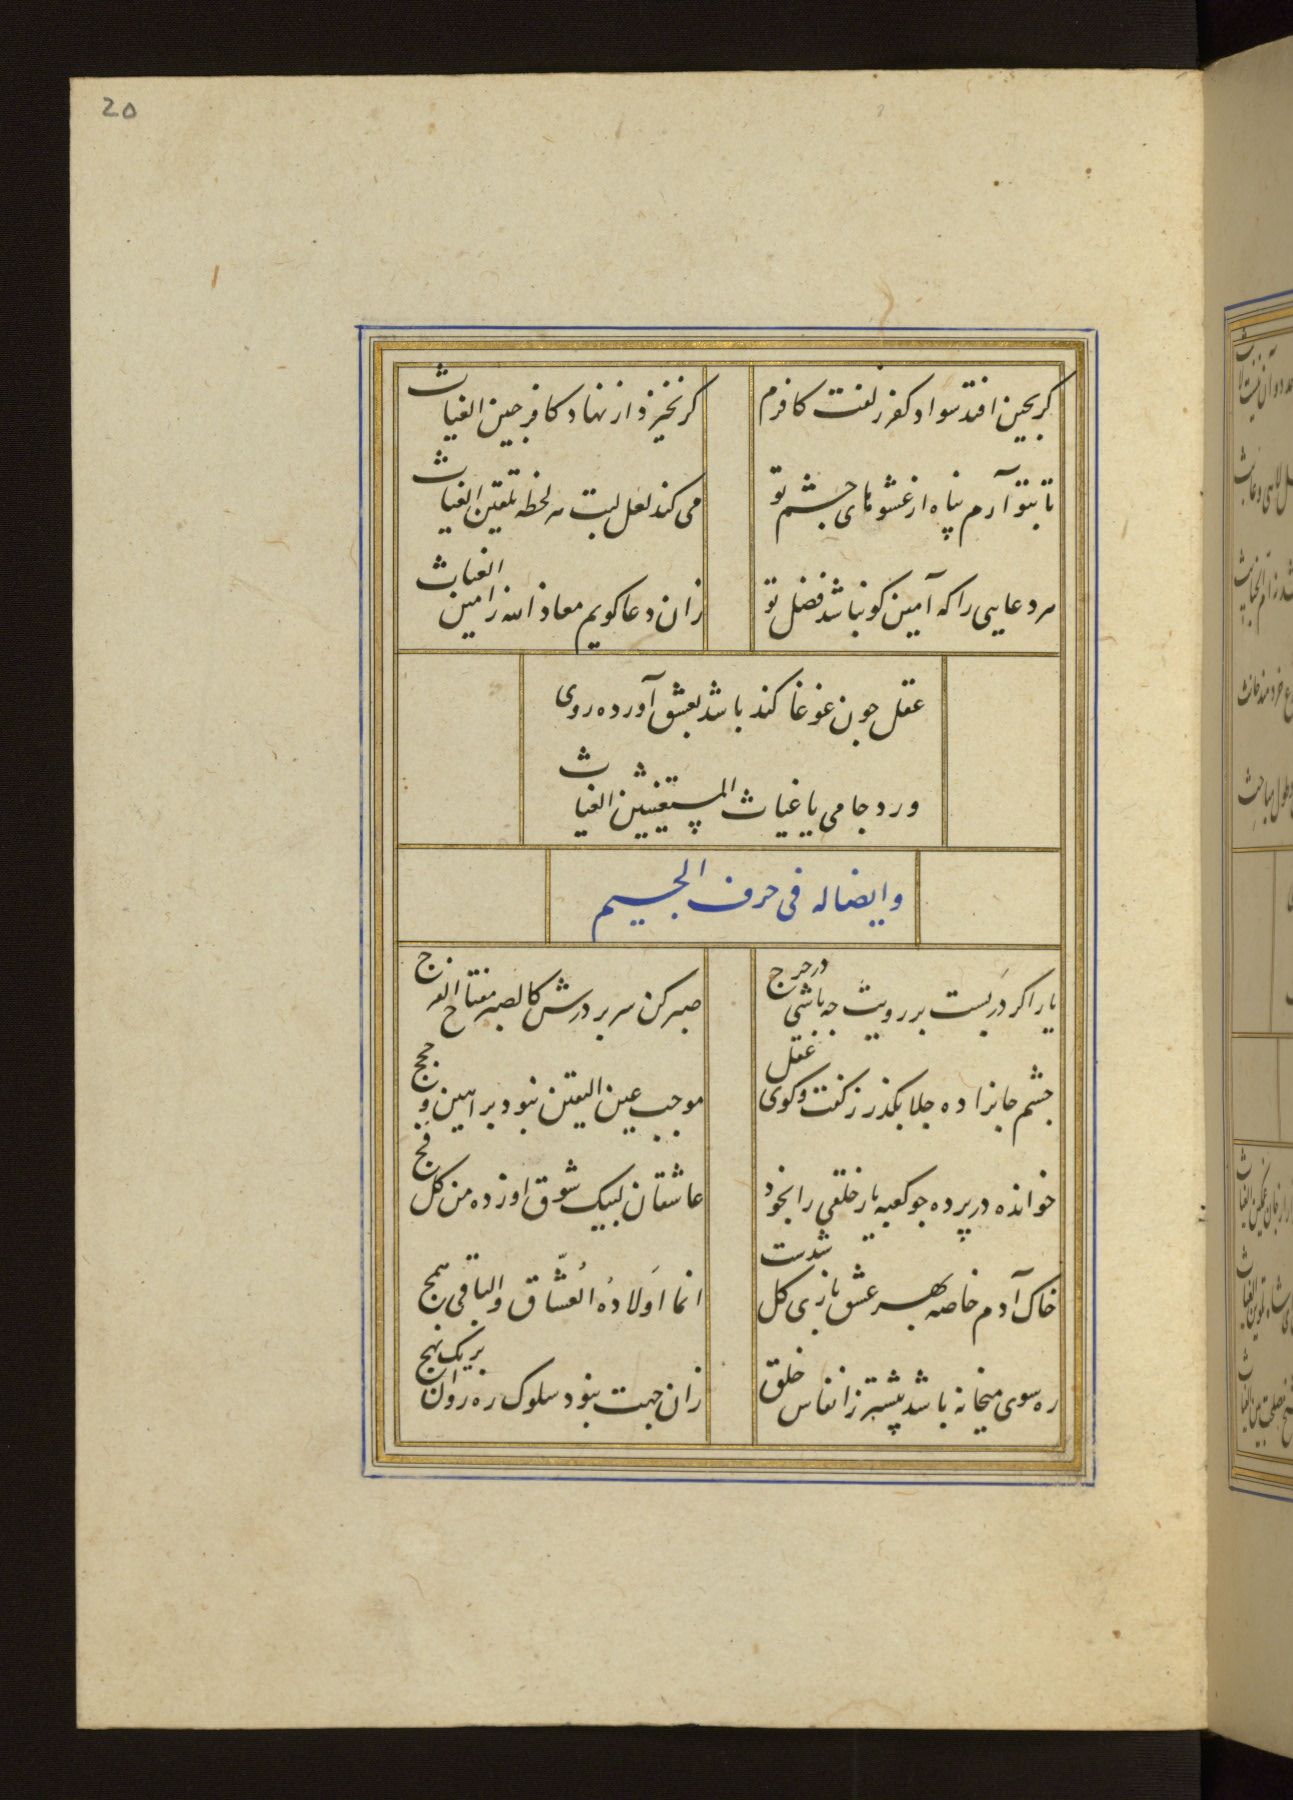 20
کر بچین افتد سواد کفر زلفت کافرم
کر نخیزد از نهاد کافر چین الغیاث
تا بتو آرم پناه از عشوهای چشم تو
می کند لعل لبت هر لحظه تلقین الغیاث
هر دعایی را که آمین کو نباشد فضل تو
زان دعا کویم معاذ الله زامین الغیاث
عقل چون غوغا کند باشد بعشق آورده روی
ورد جامی یا غیاث المستغیثین الغیاث
وایضا له فی حرف الجیم
یار اکر دَر بست بر رویت چه باشی در حرج
صبر کن سر بر درش کالصبر مفتاح الفرج
چشم جانرا ده جلا بکذر ز کفت و کوی عقل
موجب عین الیقین نبود براهین و حجج
خوانده در پرده چو کعبه یار خلقی را بخود
عاشقان لبیک شوق او زده من کل فج
خاک آدم خاصه بهر عشق بازی کل شدست
انما اَولادُه العُشّاق والباقی همج
ره سوی میخانه باشد پیشتر ز انفاس خلق
زان جهت نبود سلوک ره روان بر یک نهج